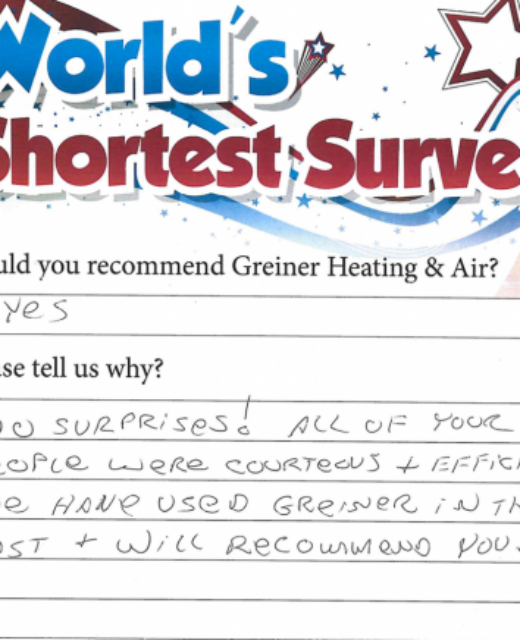 World's
Shortest Surve
uld you recommend Greiner Heating & Air?
Yes
se tell us why?
O SURPRISES! ALL OF YOUR
EOPLE WERE COURTEOUS + EFFICI
E HAVE USED GREINER IN TH
AST + WILL RECOMMEND YOU.